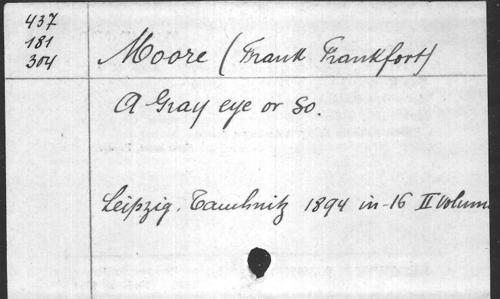 437
181
304
Moore (Frank Frankfort)
A Gray eye or so.
Leipzig. Tauchnitz 1894 in-16 II volum